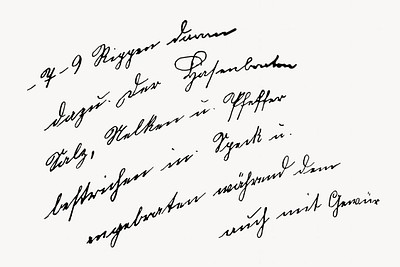 - 7 - 9 Rippen davon
dazu. Der Hasenbraten
Salz, Nelken u. Pfeffer
bestrichen in Speck u.
angebraten während dem
auch mit Gewür